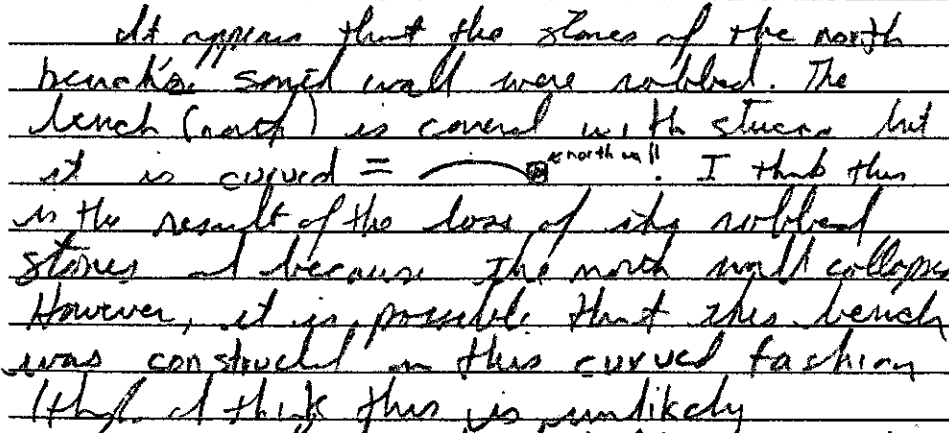 It appears that the stones of the north
bench's south wall were robbed. The
bench (north) is covered with stucco but
it is curved = north wall. I think this
is the result of the loss of its robbed
stones and because the north wall collapse
However, it is possible that this bench
was constructed in this curved fashion
I think this is unlikely